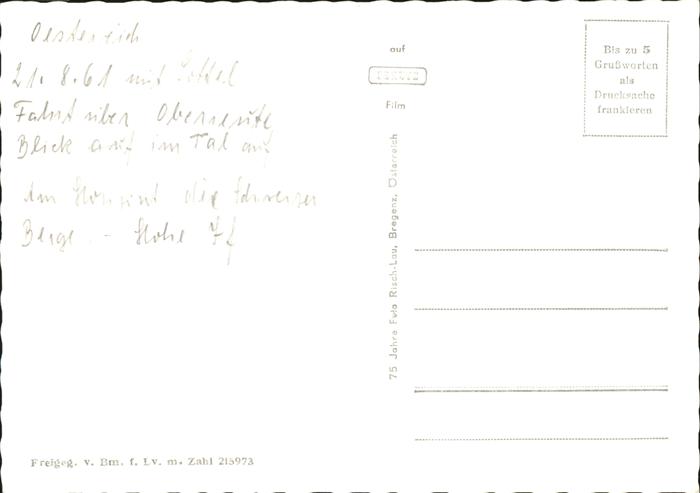 Oesterreich
21. 8. 61 mit
Fahrt über Oberreute
Blick auf im Tal auf
Am Horizont die Schweizer
Berge - Hohe
auf
PERUTZ
Film
Bis zu 5
Grußworten
als
Drucksache
frankieren
75 Jahre Foto Risch-Lau, Bregenz, Österreich
Freigeg. v. Bm. f. Lv. m. Zahl 215973